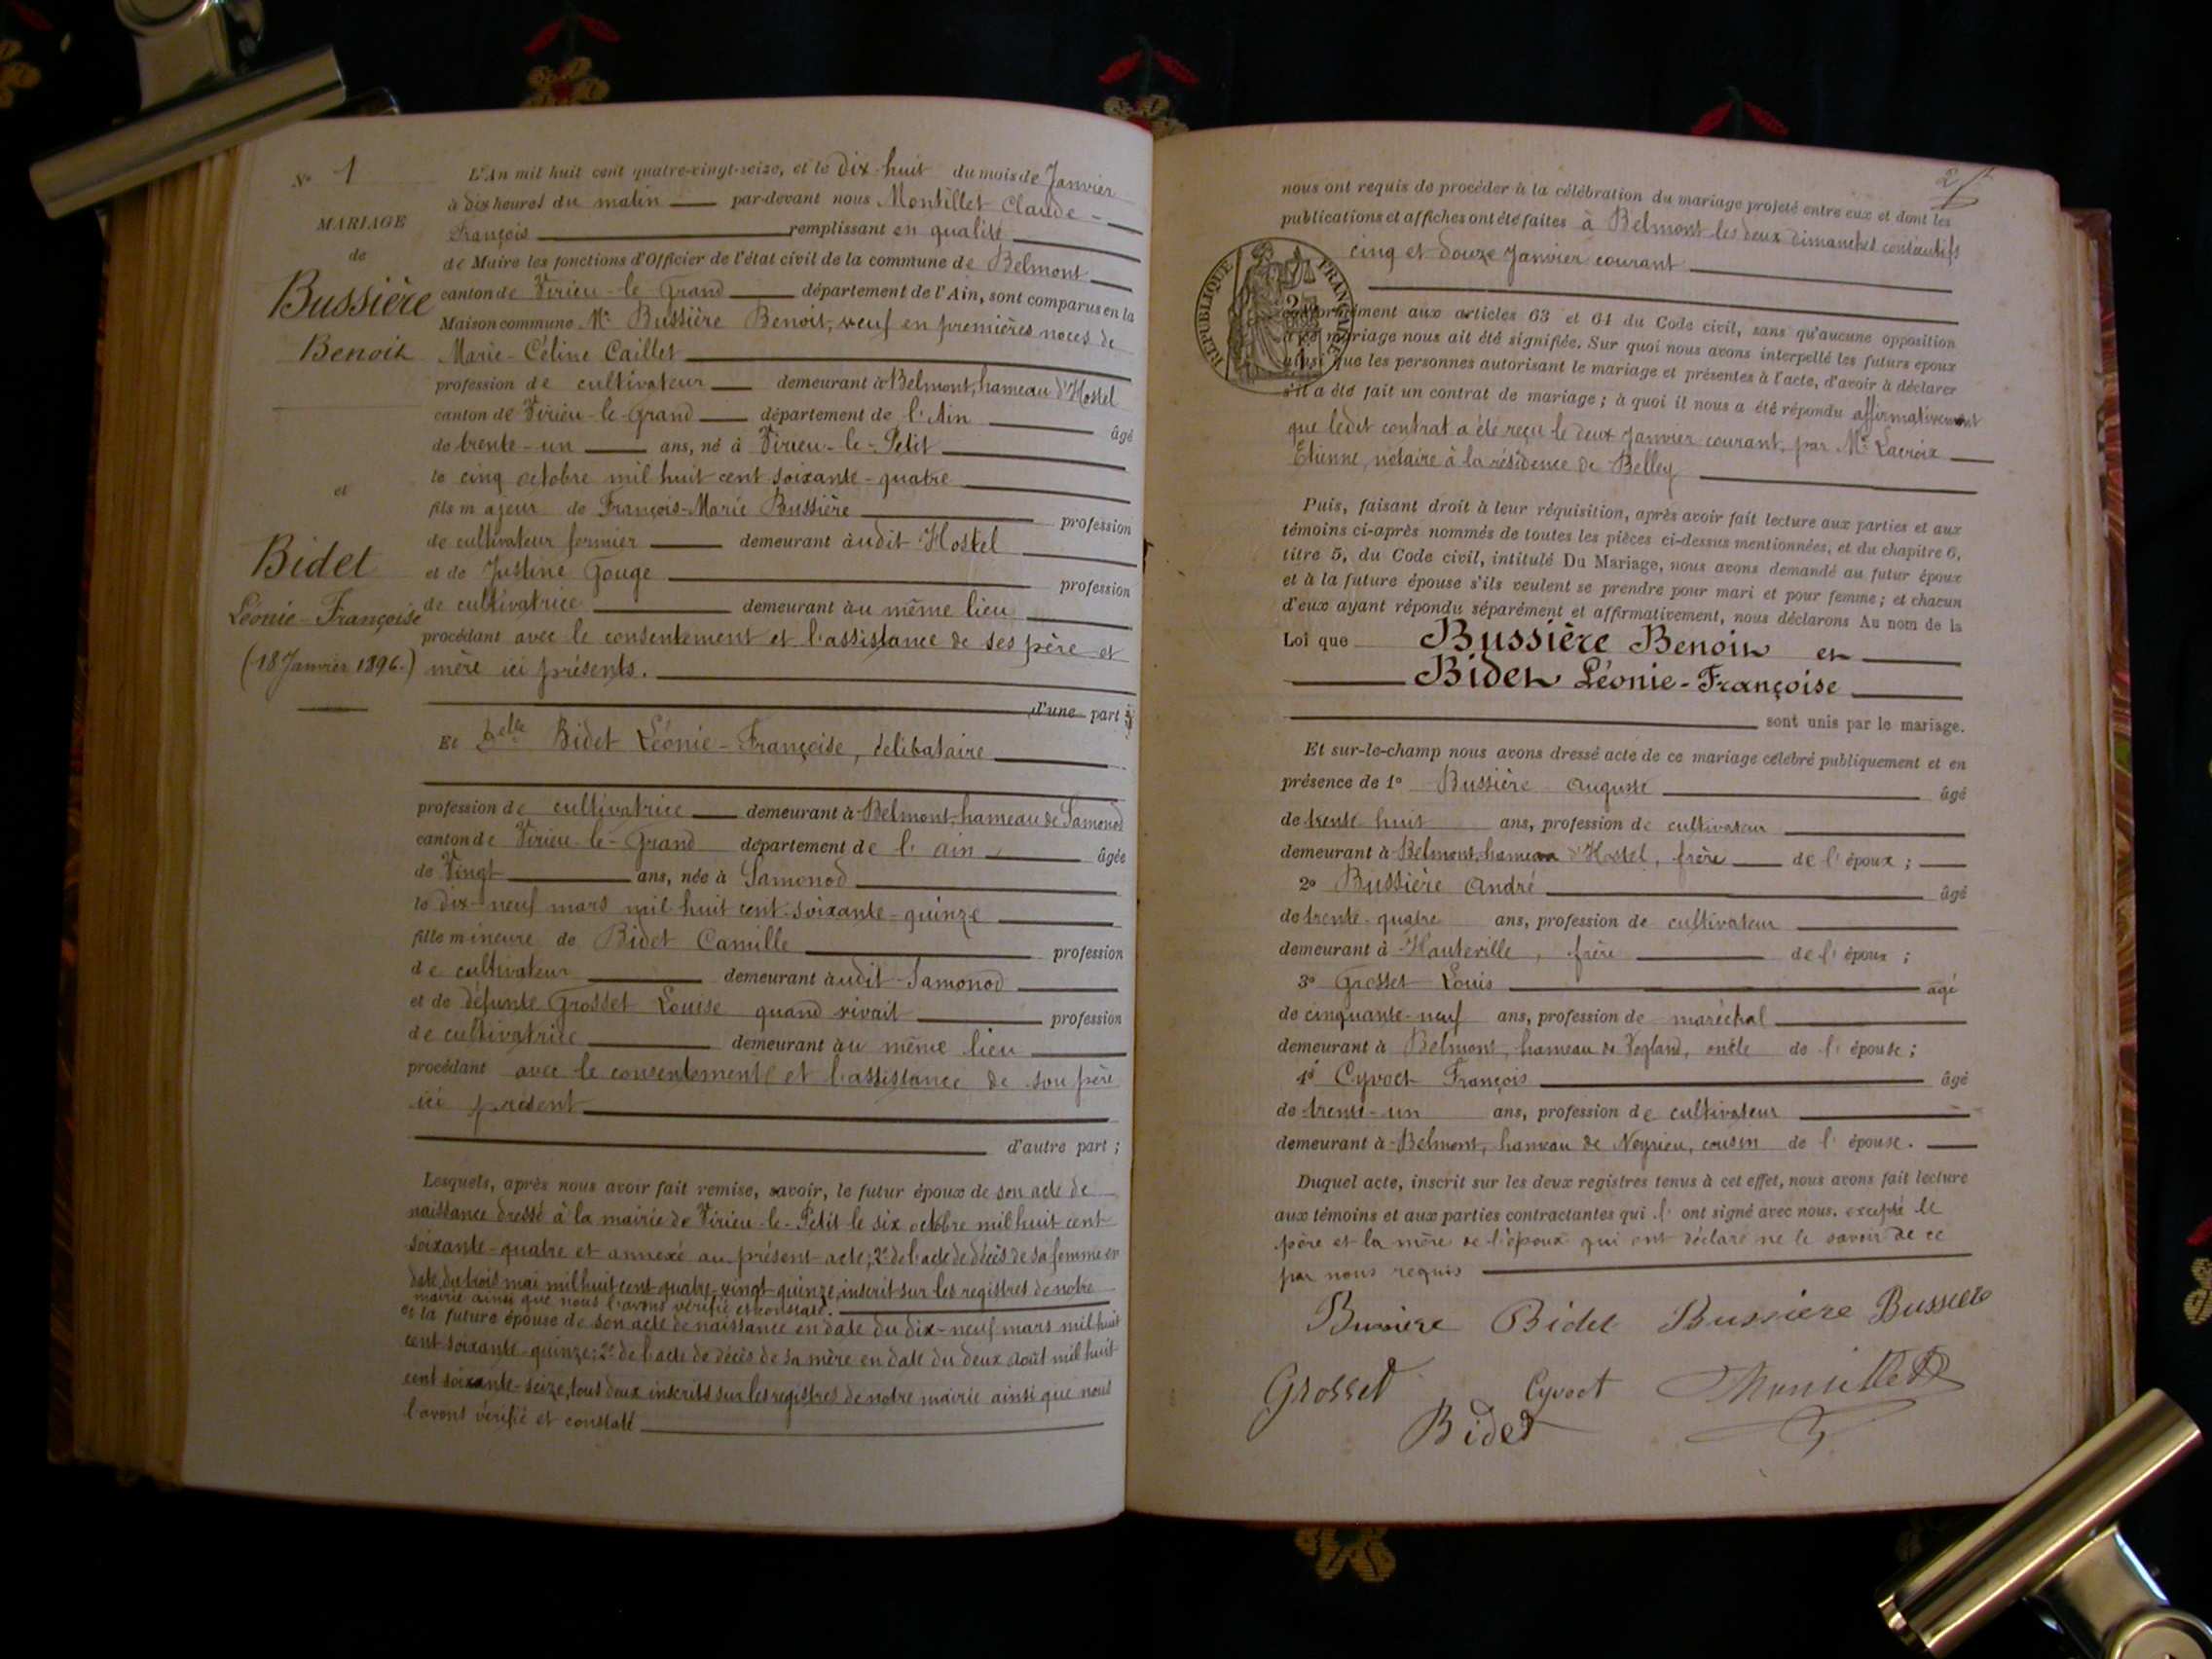 N° 1
MARIAGE
de
Bussière
Benoit
et
Bidet
Léonie-Françoise
(18 Janvier 1896.)
L'An mil huit cent quatre-vingt-seize, et le dix-huit du mois de Janvier
à dix heures du matin par-devant nous Montillet Claude-
François remplissant en qualité
de Maire les fonctions d'Officier de l'état civil de la commune de Belmont
canton de Virieu-le-Grand département de l'Ain, sont comparus en la
Maison commune Mr Bussière Benoit, veuf en premières noces de
Marie-Céline Caillet
profession de cultivateur demeurant à Belmont, hameau d'Hostel
canton de Virieu-le-Grand département de l'Ain âgé
de trente-un ans, né à Virieu-le-Petit
le cinq octobre mil huit cent soixante-quatre
fils majeur de François-Marie Bussière profession
de cultivateur fermier demeurant audit Hostel
et de Justine Gouge profession
de cultivatrice demeurant au même lieu
procédant avec le consentement et l'assistance de ses père et
mère ici présents.
d'une part ;
Et Delle Bidet Léonie-Françoise, célibataire
profession de cultivatrice demeurant à Belmont, hameau de Samonod
canton de Virieu-le-Grand département de l'ain âgée
de Vingt ans, née à Samonod
le dix-neuf mars mil huit cent soixante-quinze
fille mineure de Bidet Camille profession
de cultivateur demeurant audit Samonod
et de défunte Grosset Louise quand vivait profession
de cultivatrice demeurant au même lieu
procédant avec le consentement et l'assistance de son père
ici présent
d'autre part ;
Lesquels, après nous avoir fait remise, savoir, le futur époux de son acte de
naissance dressé à la mairie de Virieu-le-Petit le six octobre mil huit cent
soixante-quatre et annexé au présent acte; 2° de l'acte de décès de sa femme en
date du trois mai mil huit cent quatre vingt quinze, inscrit sur les registres de notre
mairie ainsi que nous l'avons vérifié et constaté.
et la future épouse de son acte de naissance en date du dix-neuf mars mil huit
cent soixante-quinze; 2° de l'acte de décès de sa mère en date du deux août mil huit
cent soixante-seize, tous deux inscrits sur les registres de notre mairie ainsi que nous
l'avons vérifié et constaté
2
nous ont requis de procéder à la célébration du mariage projeté entre eux et dont les
publications et affiches ont été faites à Belmont les deux dimanches consécutifs
cinq et douze Janvier courant
RÉPUBLIQUE FRANÇAISE
conformément aux articles 63 et 64 du Code civil, sans qu'aucune opposition
à ce mariage nous ait été signifiée. Sur quoi nous avons interpellé les futurs époux
ainsi que les personnes autorisant le mariage et présentes à l'acte, d'avoir à déclarer
s'il a été fait un contrat de mariage ; à quoi il nous a été répondu affirmativement
que ledit contrat a été reçu le deux Janvier courant, par Me Lacroix
Etienne, notaire à la résidence de Belley
Puis, faisant droit à leur réquisition, après avoir fait lecture aux parties et aux
témoins ci-après nommés de toutes les pièces ci-dessus mentionnées, et du chapitre 6,
titre 5, du Code civil, intitulé Du Mariage, nous avons demandé au futur époux
et à la future épouse s'ils veulent se prendre pour mari et pour femme ; et chacun
d'eux ayant répondu séparément et affirmativement, nous déclarons Au nom de la
Loi que Bussière Benoit et
Bidet Léonie-Françoise
sont unis par le mariage.
Et sur-le-champ nous avons dressé acte de ce mariage célébré publiquement et en
présence de 1° Bussière Auguste âgé
de trente huit ans, profession de cultivateur
demeurant à Belmont, hameau d'Hostel, frère de l'époux ;
2° Bussière André âgé
de trente-quatre ans, profession de cultivateur
demeurant à Hauteville, frère de l'époux ;
3° Grosset Louis âgé
de cinquante-neuf ans, profession de maréchal
demeurant à Belmont, hameau de Vogland, oncle de l'épouse ;
4° Cyvoct François âgé
de trente-un ans, profession de cultivateur
demeurant à Belmont, hameau de Neyrieu, cousin de l'épouse.
Duquel acte, inscrit sur les deux registres tenus à cet effet, nous avons fait lecture
aux témoins et aux parties contractantes qui l'ont signé avec nous, excepté le
père et la mère de l'époux qui ont déclaré ne le savoir de ce
par nous requis
Bussière Bidet Bussiere Bussiere
Grosset Cyvoct Montillet
Bidet